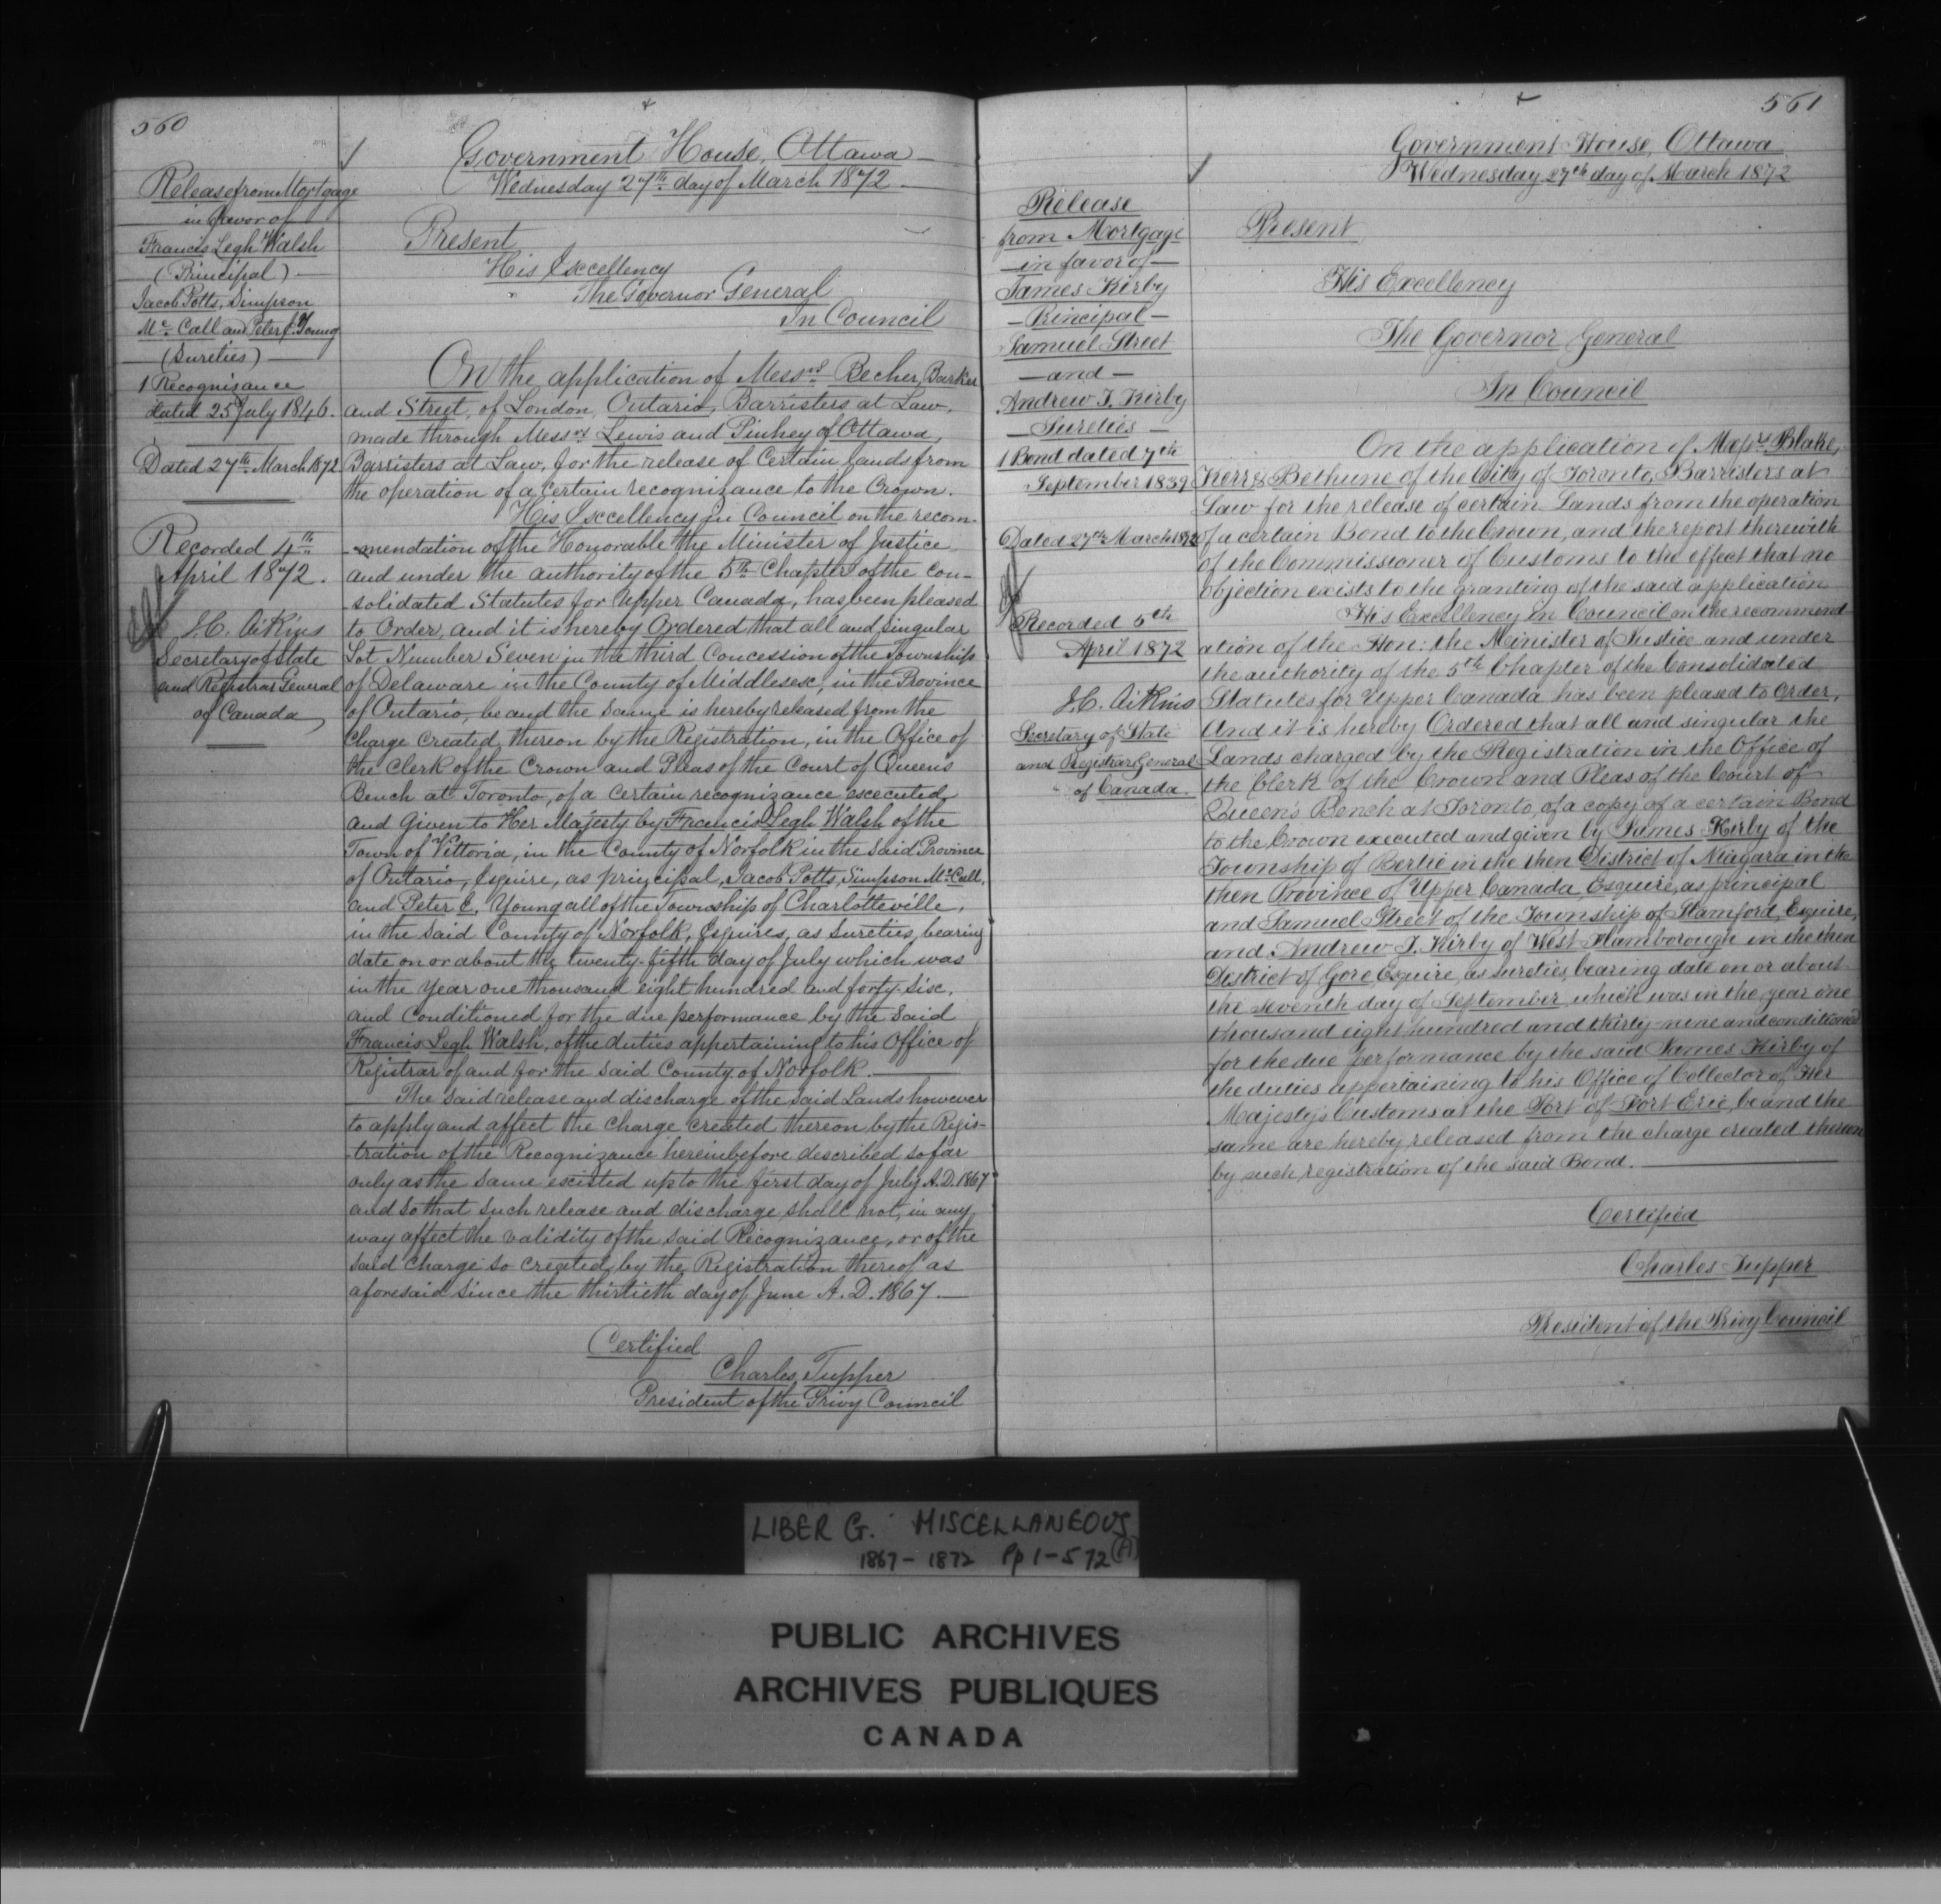 560
Release from Mortgage
in favor of
Francis Legh Walsh
(Principal)
Jacob Potts, Simpson
Mc Call and Peter C. Young
(Sureties)
1 Recognizance
dated 25 July 1846.
Dated 27th March 1872
Recorded 4th
April 1872.
J.C. Aikins
Secretary of State
and Registrar General
of Canada
Government House, Ottawa
Wednesday 27th day of March 1872.
Present
His Excellency
The Governor General
In Council
On the application of Messrs Becher, Barker
and Street, of London, Ontario, Barristers at Law,
made through Messrs Lewis and Pinhey of Ottawa,
Barristers at Law, for the release of Certain lands from
the operation of a certain recognizance to the Crown.
His Excellency in Council on the recom-
-mendation of the Honorable the Minister of Justice
and under the authority of the 5th Chapter of the Con-
-solidated Statutes for Upper Canada, has been pleased
to Order, and it is hereby Ordered that all and singular
Lot Number Seven in the third Concession of the Township
of Delaware in the County of Middlesex, in the Province
of Ontario, be and the same is hereby released from the
charge created thereon by the Registration, in the Office of
the Clerk of the Crown and Pleas of the Court of Queens
Bench at Toronto, of a certain recognizance executed
and given to Her Majesty by Francis Legh Walsh of the
Town of Vittoria, in the County of Norfolk in the said Province
of Ontario, Esquire, as principal, Jacob Potts, Simpson McCall,
and Peter C. Young all of the Township of Charlotteville,
in the said County of Norfolk, Esquires, as Sureties, bearing
date on or about the twenty-fifth day of July which was
in the year one thousand eight hundred and forty-six,
and Conditioned for the due performance by the said
Francis Legh Walsh, of the duties appertaining to his Office of
Registrar of and for the said County of Norfolk.
The said release and discharge of the said Lands however
to apply and affect the charge created thereon by the Regis-
-tration of the Recognizance hereinbefore described so far
only as the same existed up to the first day of July A.D. 1867
and so that such release and discharge shall not, in any
way affect the validity of the said Recognizance, or of the
said charge so created by the Registration thereof as
aforesaid since the thirtieth day of June A.D. 1867.
Certified
Charles Tupper
President of the Privy Council
561
Release
from Mortgage
in favor of
James Kirby
Principal
Samuel Street
and
Andrew T. Kirby
Sureties
1 Bond dated 7th
September 1839
Dated 27th March 1872
Recorded 5th
April 1872
J.C. Aikins
Secretary of State
and Registrar General
of Canada.
Government House, Ottawa
Wednesday 27th day of March 1872
Present
His Excellency
The Governor General
In Council
On the application of Messrs Blake,
Kerr & Bethune of the City of Toronto, Barristers at
Law for the release of certain Lands from the operation
of a certain Bond to the Crown, and the report therewith
of the Commissioner of Customs to the effect that no
objection exists to the granting of the said application
His Excellency in Council on the recommend-
ation of the Hon: the Minister of Justice and under
the authority of the 5th Chapter of the Consolidated
Statutes for Upper Canada has been pleased to Order,
And it is hereby Ordered that all and singular the
Lands charged by the Registration in the Office of
the Clerk of the Crown and Pleas of the Court of
Queen's Bench at Toronto, of a copy of a certain Bond
to the Crown executed and given by James Kirby of the
Township of Bertie in the then District of Niagara in the
then Province of Upper Canada, Esquire, as principal
and Samuel Street of the Township of Stamford, Esquire,
and Andrew T. Kirby of West Flamborough in the then
District of Gore, Esquire, as sureties, bearing date on or about
the seventh day of September which was in the year one
thousand eight hundred and thirty-nine and conditioned
for the due performance by the said James Kirby of
the duties appertaining to his Office of Collector of Her
Majesty's Customs at the Port of Fort Erie, be and the
same are hereby released from the charge created thereon
by such registration of the said Bond.
Certified
Charles Tupper
President of the Privy Council
LIBER G. MISCELLANEOUS
1867-1872 Pp 1-572 (A)
PUBLIC ARCHIVES
ARCHIVES PUBLIQUES
CANADA